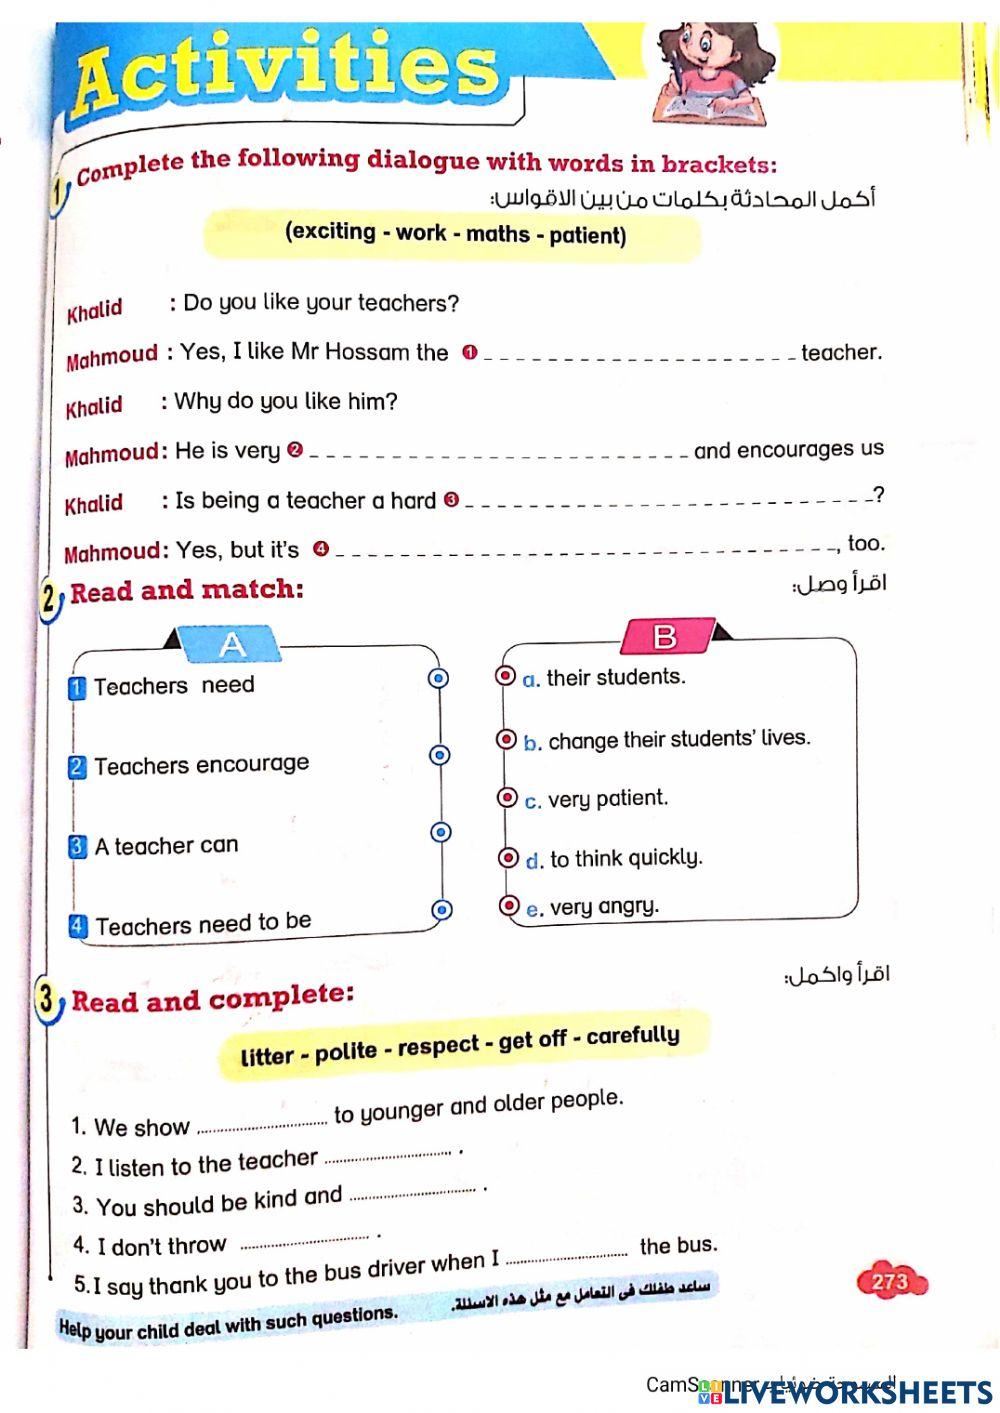 Activities
1, Complete the following dialogue with words in brackets:
أكمل المحادثة بكلمات من بين الاقواس:
(exciting - work - maths - patient)
Khalid : Do you like your teachers?
Mahmoud : Yes, I like Mr Hossam the 1 _ _ _ _ _ _ _ _ _ _ teacher.
Khalid : Why do you like him?
Mahmoud : He is very 2 _ _ _ _ _ _ _ _ _ _ and encourages us
Khalid : Is being a teacher a hard 3 _ _ _ _ _ _ _ _ _ _ ?
Mahmoud : Yes, but it's 4 _ _ _ _ _ _ _ _ _ _ , too.
2, Read and match:
اقرأ وصل:
A
1 Teachers need
2 Teachers encourage
3 A teacher can
4 Teachers need to be
B
a. their students.
b. change their students' lives.
c. very patient.
d. to think quickly.
e. very angry.
3, Read and complete:
اقرأ واكمل:
litter - polite - respect - get off - carefully
1. We show .............................. to younger and older people.
2. I listen to the teacher .............................. .
3. You should be kind and .............................. .
4. I don't throw .............................. .
5.I say thank you to the bus driver when I .............................. the bus.
273
Help your child deal with such questions.
ساعد طفلك فى التعامل مع مثل هذه الاسئلة.
CamScanner
LIVEWORKSHEETS